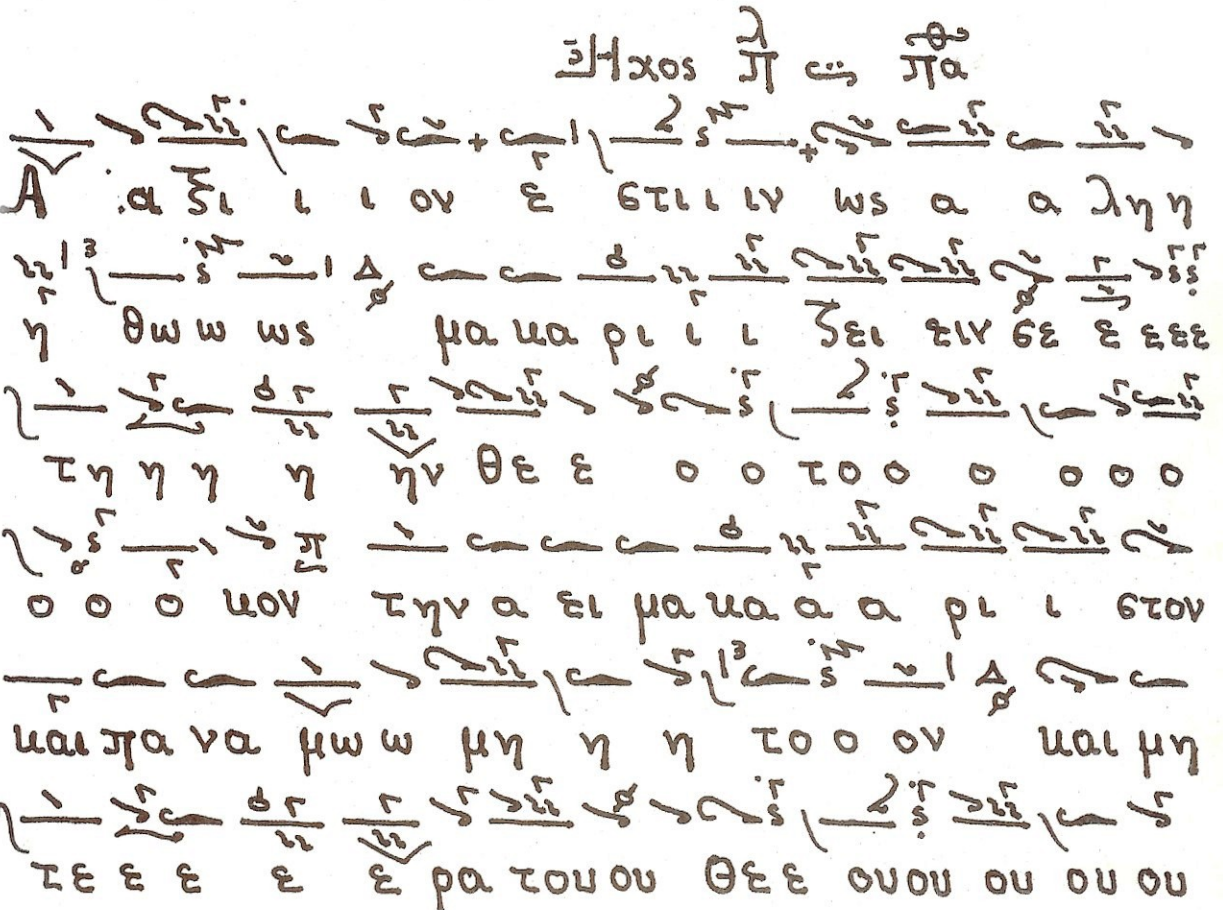 Ἦχος λ π πα
Α α ξι ι ι ον ε στι ι ιν ως α α λη η
η θω ω ως μα κα ρι ι ι ζει ειν σε ε εεε
τη η η η ην θε ε ο ο το ο ο ο ο ο
ο ο ο κον την α ει μα κα α α ρι ι στον
και πα να μω ω μη η η το ο ον και μη
τε ε ε ε ε ρα του ου θε ε ου ου ου ου ου